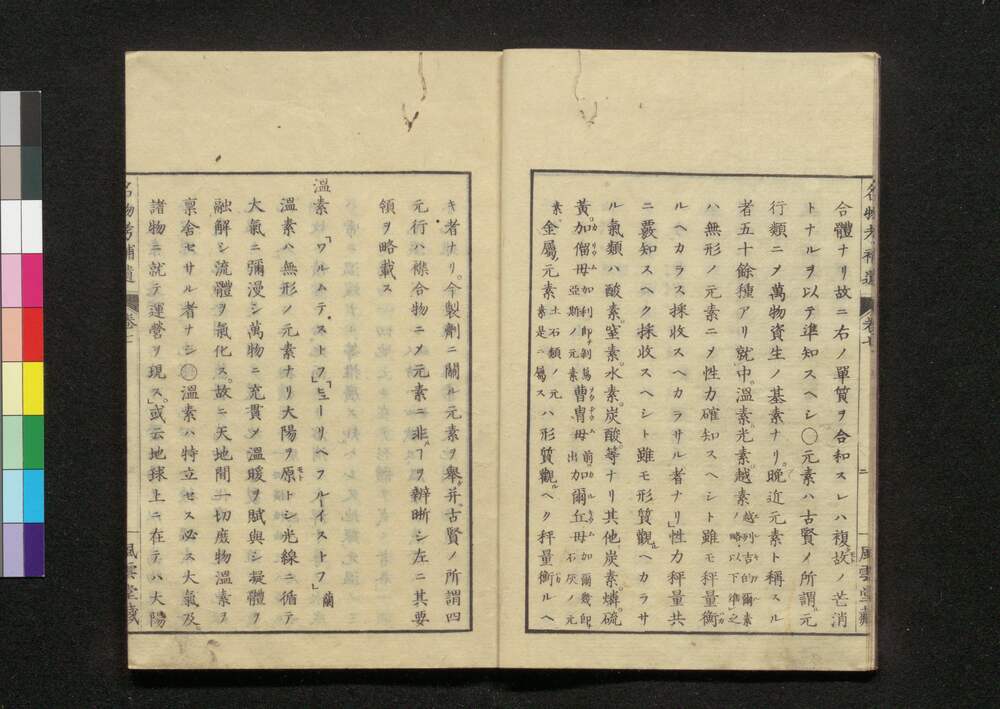 名物考補遺 卷七 二 風雲堂藏
合體ナリ故ニ右ノ單質ヲ合和スレハ複故ノ芒消
トナルヲ以テ準知スヘシ〇元素ハ古賢ノ所謂元
行類ニメ萬物資生ノ基素ナリ晩近元素ト稱スル
者五十餘種アリ就中溫素光素越素越列吉的爾素ノ略以下準之
ハ無形ノ元素ニメ性力確知スヘシト雖モ秤量衡
ルヘカラス採收スヘカラサル者ナリ」性力秤量共
ニ覈知スヘク採收スヘシト雖モ形質觀ヘカラサ
ル氣類ハ酸素窒素水素炭酸等ナリ其他炭素燐硫
黃加僧母加利即剝篤亞斯ノ元素曹冑母加爾丘母加爾幾即石灰ノ元
素金屬元素土石類ノ元素是ニ屬スハ形質觀ヘク秤量衡ルヘ
キ者ナリ今製劑ニ關ル元素ヲ舉并古賢ノ所謂四
元行ハ襍合物ニメ元素ニ非ヿヲ辯晰シ左ニ其要
領ヲ略載ス
溫素「ワルムテストフ」「ヒューリヘフルイストフ」蘭
溫素ハ無形ノ元素ナリ大陽ヲ原トシ光線ニ循テ
大氣ニ彌漫シ萬物ニ充貫メ溫暖ヲ賦與シ凝體ヲ
融解シ流體ヲ氣化ス故ニ天地間一切度物溫素ヲ
稟舍セサル者ナシ溫素ハ特立セス必ス大氣及
諸物ニ就テ運營ヲ現ス」或云地球上ニ在テハ大陽
名物考補遺 卷七 風雲堂藏